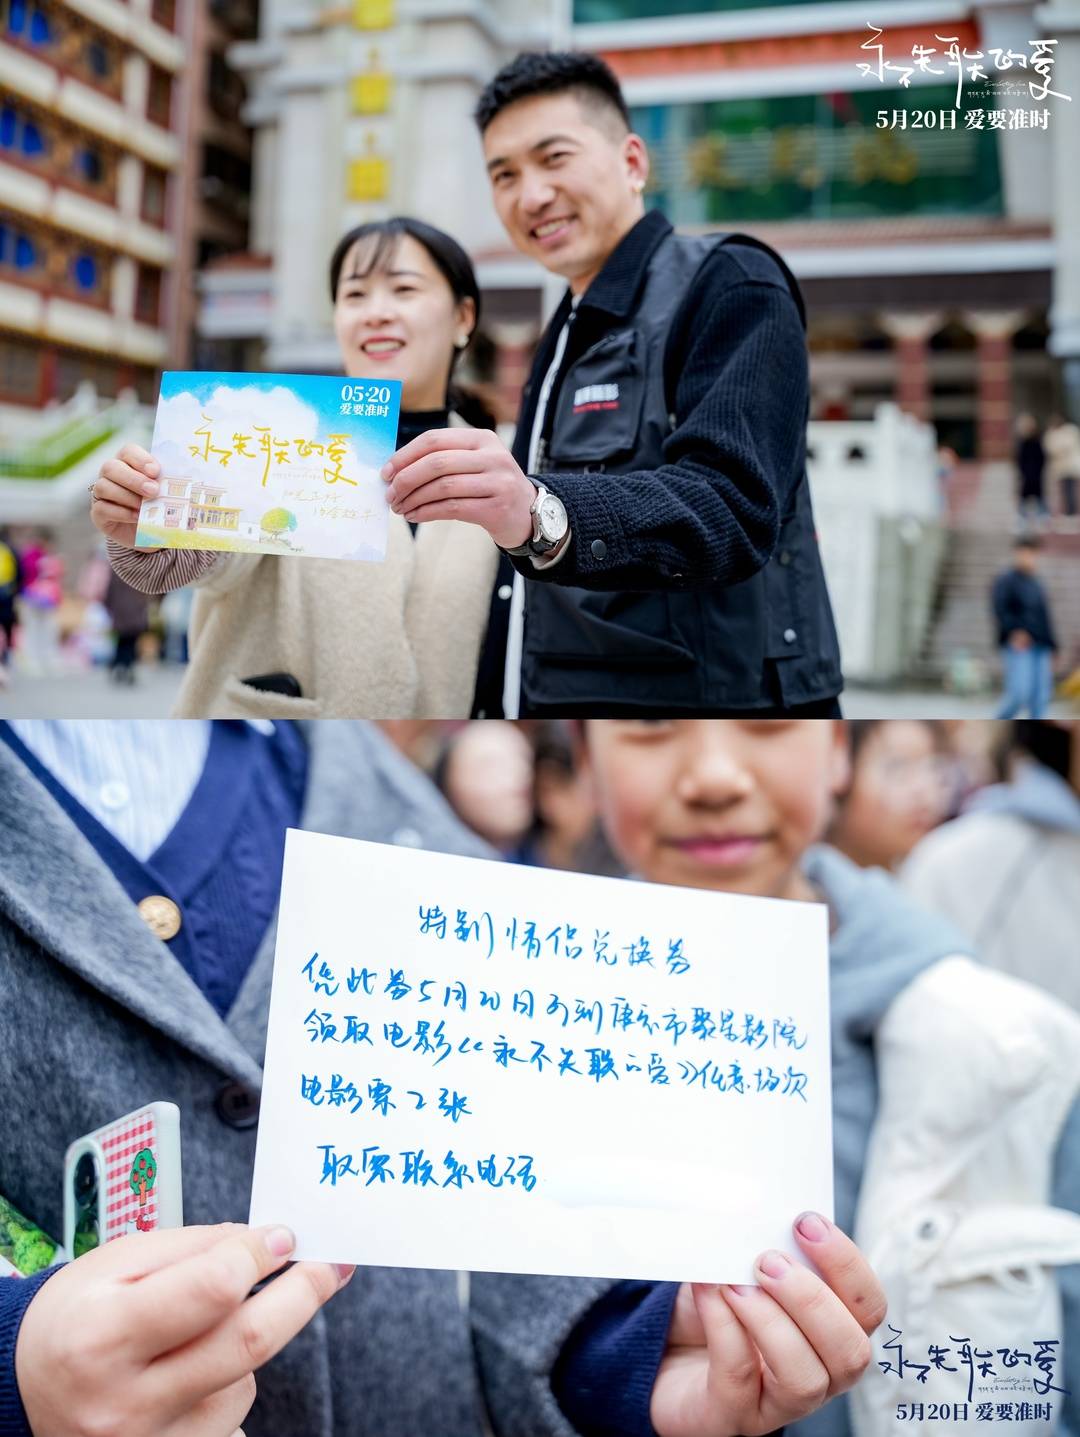 永不失联的爱
Everlasting Love
5月20日 爱要准时
05·20
爱要准时
永不失联的爱
特别情侣兑换券
凭此券5月20日可到康定市聚星影院
领取电影《永不失联的爱》任意场次
电影票2张
取票联系电话
永不失联的爱
Everlasting Love
5月20日 爱要准时